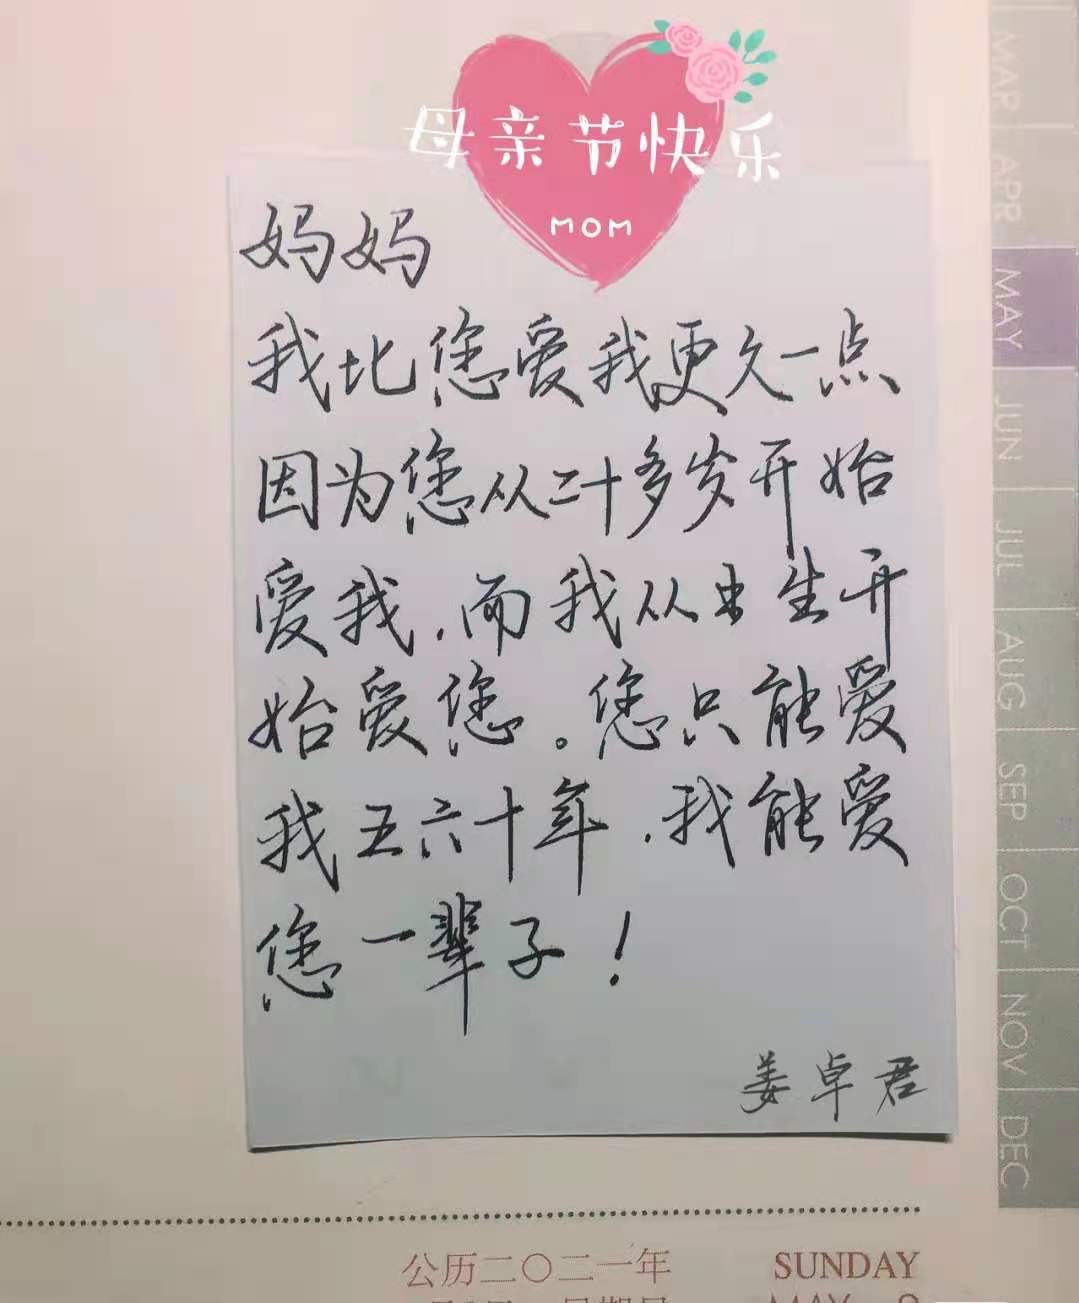 母亲节快乐
MOM
妈妈
我比您爱我更久一点
因为您从二十多岁开始
爱我，而我从出生开
始爱您。您只能爱
我五六十年，我能爱
您一辈子！
姜卓君
MAR
APR
MAY
JUN
JUL
AUG
SEP
OCT
NOV
DEC
公历二〇二一年 SUNDAY